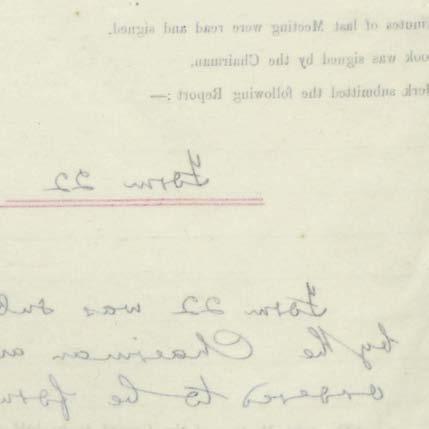 inutes of last Meeting were read and signed.
ook was signed by the Chairman.
lerk submitted the following Report :—
Form 22
Form 22 was sub
by the Chairman an
ordered to be forw